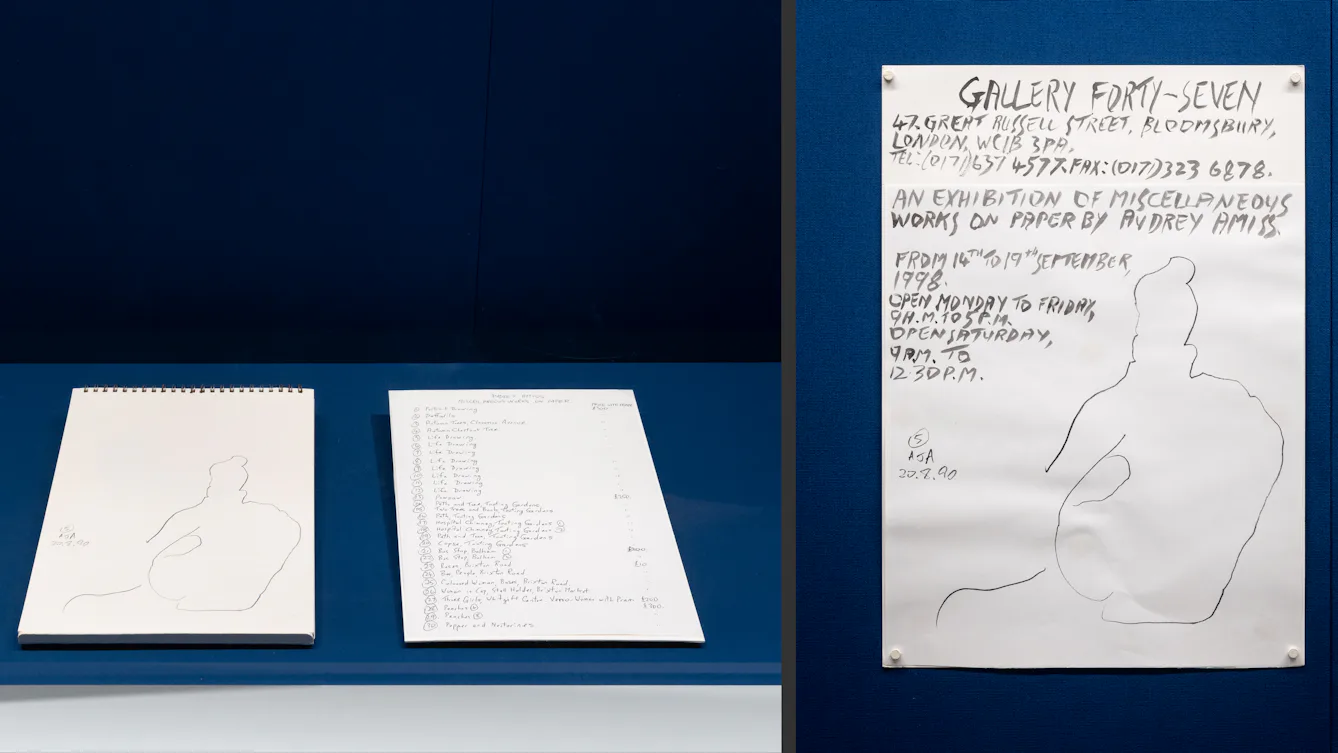 ⑤
AJA
20.8.90
AUDREY AMISS
MISCELLANEOUS WORKS ON PAPER
① Public Drawing
② Daffodils
③ Autumn Trees, Clarence Avenue
④ Autumn Chestnut Tree
⑤ Life Drawing
⑥ Life Drawing
Life Drawing
Life Drawing
Life Drawing
Life Drawing
Life Drawing
Life Drawing
£300
Path and Trees, Tooting Gardens
Two Trees and Tooting Gardens
Path, Tooting Gardens
Hospital Chimney, Tooting Gardens ①
Hospital Chimney, Tooting Gardens ②
Path and Tree, Tooting Gardens
Copse, Tooting Gardens
Bus Stop, Balham ①
Bus Stop, Balham ②
Roses, Brixton Road
Bus, People, Brixton Road
Coloured Woman, Roses, Brixton Road
Woman in Cap, Stall Holder, Brixton Market
Three Girls, Whitgift Centre Woman with Pram £200
Peaches £300
Peaches
㉚ Pepper and Nectarines
GALLERY FORTY-SEVEN
47. GREAT RUSSELL STREET, BLOOMSBURY,
LONDON, WC1B 3PA.
TEL:(0171)637 4577. FAX:(0171)323 6878.
AN EXHIBITION OF MISCELLANEOUS
WORKS ON PAPER BY AUDREY AMISS.
FROM 14TH TO 19TH SEPTEMBER,
1998.
OPEN MONDAY TO FRIDAY,
9A.M. TO 5P.M.
OPEN SATURDAY,
9A.M. TO
12.30P.M.
⑤
AJA
20.8.90